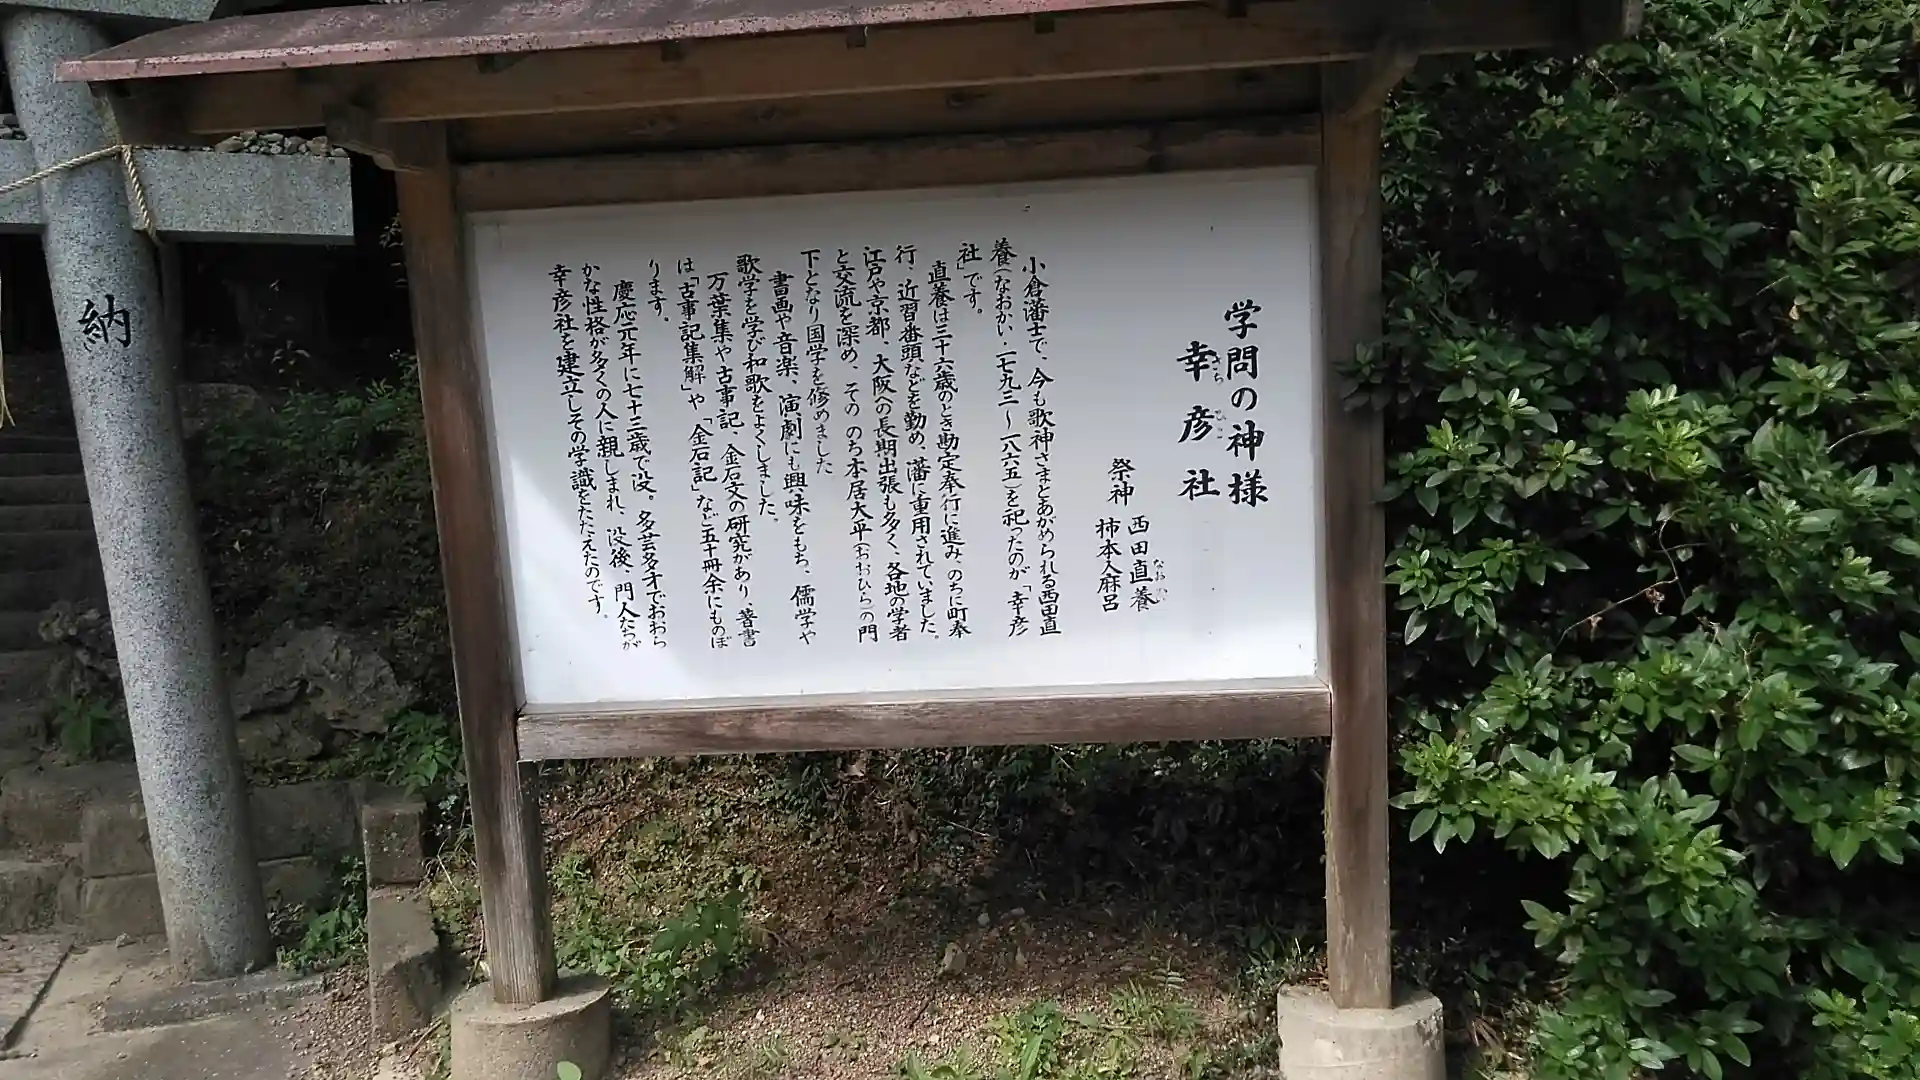 学問の神様
幸彦社
さち ひこ
祭神 西田直養
なおかい
柿本人麻呂
小倉藩士で、今も歌神さまとあがめられる西田直
養(なおかい・一七九三〜一八六五)を祀ったのが「幸彦
社」です。
直養は三十六歳のとき勘定奉行に進み、のちに町奉
行、近習番頭などを勤め、藩に重用されていました。
江戸や京都、大阪への長期出張も多く、各地の学者
と交流を深め、その のち本居大平(おおひら)の門
下となり国学を修めました
書画や音楽、演劇にも興味をもち、儒学や
歌学を学び和歌をよくしました。
万葉集や古事記、金石文の研究があり、著書
は「古事記集解」や「金石記」など五十冊余にものぼ
ります。
慶応元年に七十三歳で没。多芸多才でおおら
かな性格が多くの人に親しまれ、没後、門人たちが
幸彦社を建立しその学識をたたえたのです。
納